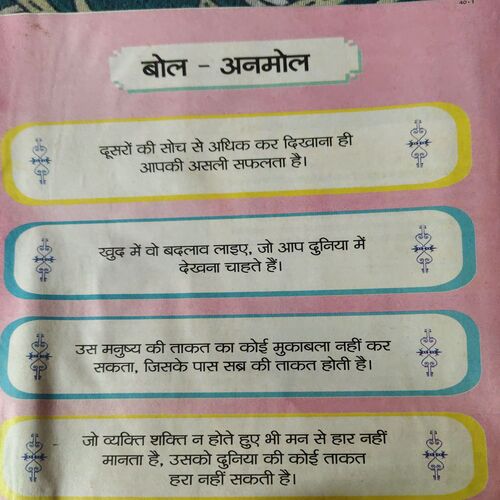 बोल - अनमोल
दूसरों की सोच से अधिक कर दिखाना ही
आपकी असली सफलता है।
खुद में वो बदलाव लाइए, जो आप दुनिया में
देखना चाहते हैं।
उस मनुष्य की ताकत का कोई मुकाबला नहीं कर
सकता, जिसके पास सब्र की ताकत होती है।
जो व्यक्ति शक्ति न होते हुए भी मन से हार नहीं
मानता है, उसको दुनिया की कोई ताकत
हरा नहीं सकती है।